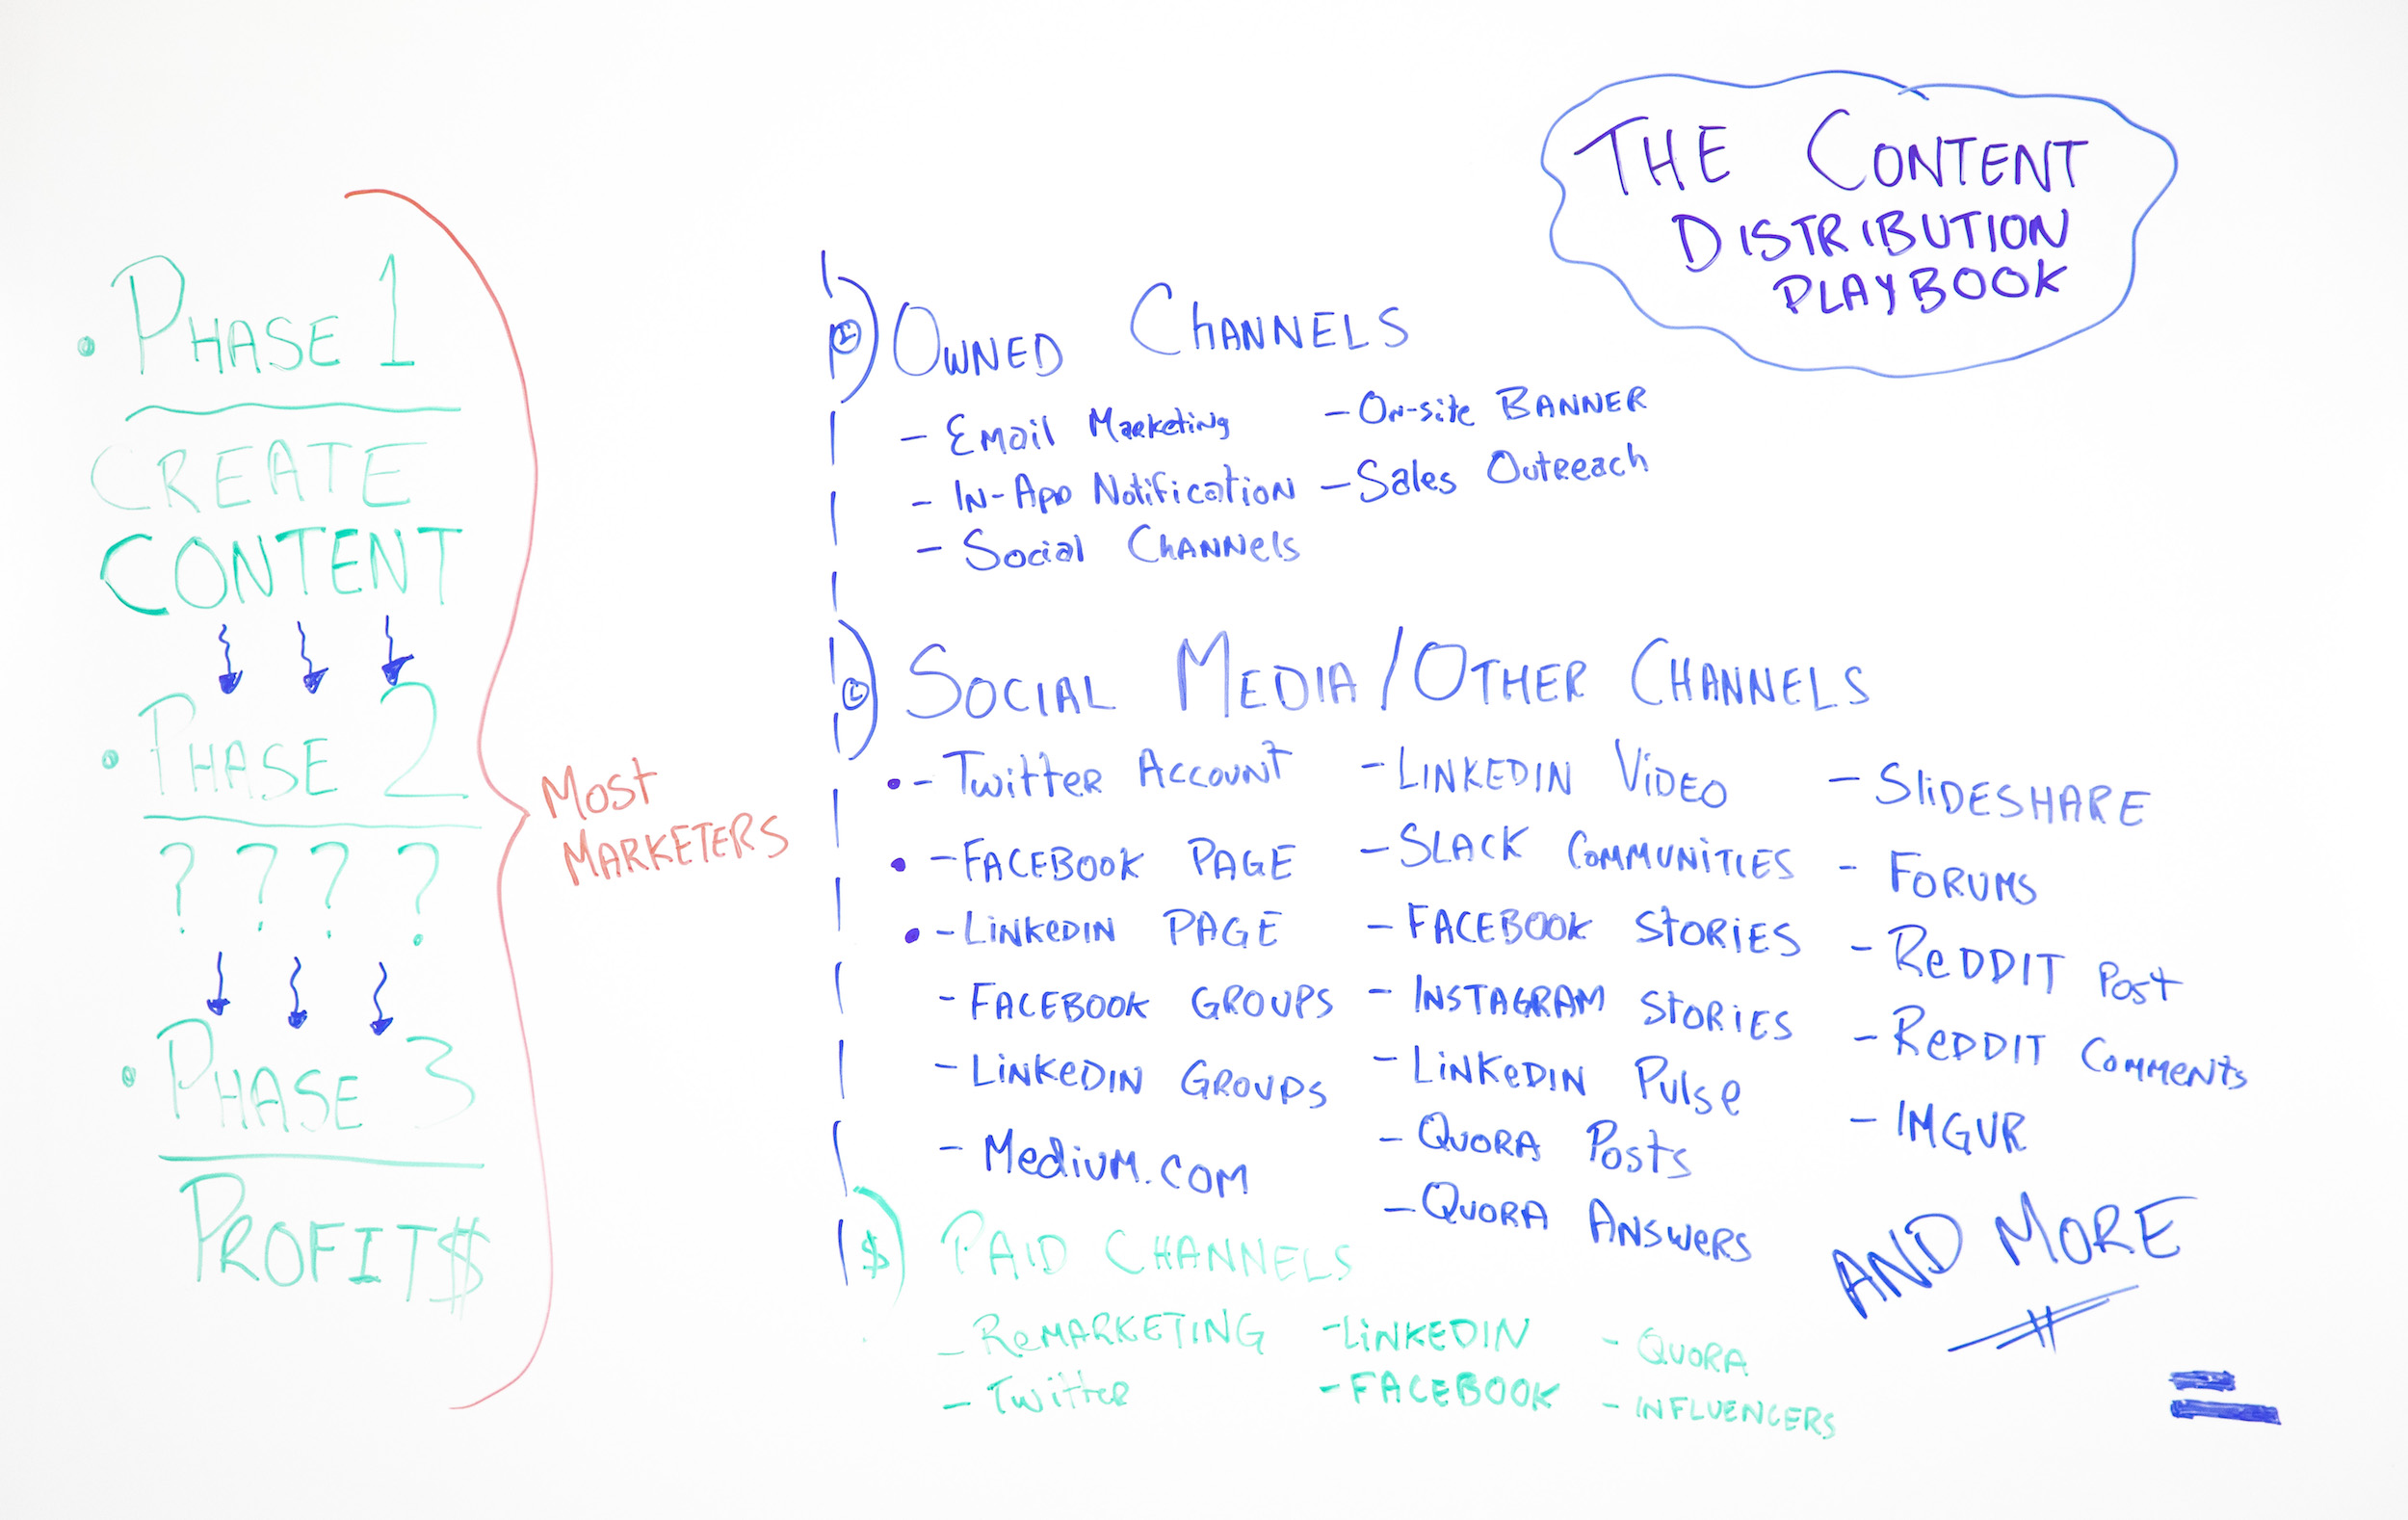 THE CONTENT
DISTRIBUTION
PLAYBOOK
• PHASE 1
CREATE
CONTENT
• PHASE 2
? ? ? ?
• PHASE 3
PROFIT$
MOST
MARKETERS
OWNED CHANNELS
- EMail Marketing
- IN-App Notification
- Social Channels
- On-site BANNER
- Sales Outreach
SOCIAL MEDIA/OTHER CHANNELS
• - Twitter Account
• - FACEBOOK PAGE
• - LINKEDIN PAGE
- FACEBOOK GROUPS
- LINKEDIN GROUPS
- Medium.com
- LINKEDIN VIDEO
- SLACK COMMUNITIES
- FACEBOOK STORIES
- INSTAGRAM STORIES
- LINKEDIN Pulse
- QUORA Posts
- QUORA ANSWERS
- SLIDESHARE
- FORUMS
- REDDIT Post
- REDDIT COMMENTS
- IMGUR
AND MORE
$ PAID CHANNELS
- REMARKETING
- Twitter
- LINKEDIN
- FACEBOOK
- QUORA
- INFLUENCERS